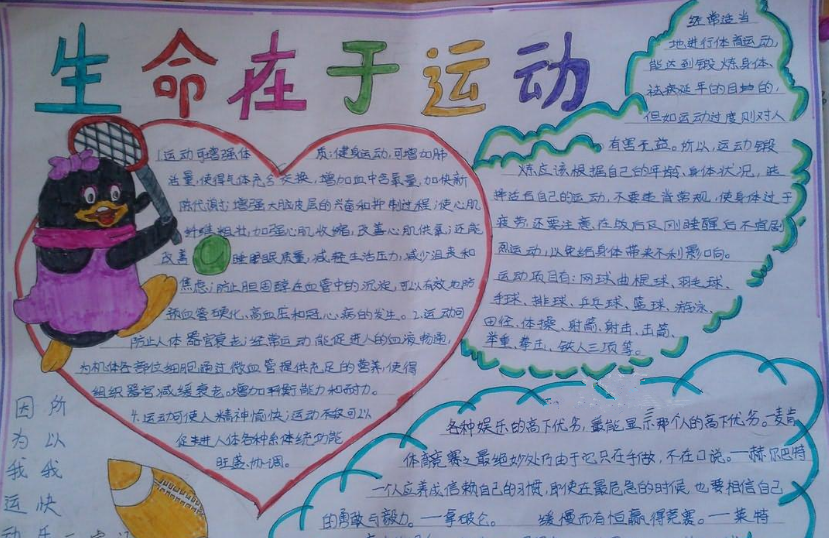 生命在于运动
1.运动可增强体质:健身运动,可增加肺
活量,使得气体充分交换,增加血中含氧量,加快新
陈代谢;增强大脑皮层的兴奋和抑制过程;使心肌
纤维粗壮,加强心肌收缩,改善心肌供氧;还能
改善睡眠质量,减轻生活压力,减少沮丧和
焦虑;防止胆固醇在血管中的沉淀,可以有效地防
预血管硬化、高血压和冠心病的发生。2.运动可
防止人体器官衰老:经常运动能促进人的血液畅通,
为机体各部位细胞通过微血管提供充足的营养,使得
组织器官减缓衰老。增加耐力和
4.运动可使人精神愉快:运动不仅可以
促进人体各种系体统功能
旺盛、协调。
经常适当
地进行体育运动,
能达到锻炼身体、
祛病延年的目地的,
但如运动过度则对人
有害无益。所以,运动锻
炼应该根据自己的年龄、身体状况,选
择适合自己的运动,不要违背常规,使身体过于
疲劳;还要注意,在饭后及刚睡醒后不宜剧
烈运动,以免给身体带来不利影响。
运动项目有:网球、曲棍球、羽毛球、
手球、排球、乒乓球、篮球、游泳、
田径、体操、射箭、射击、击剑、
举重、拳击、铁人三项等。
各种娱乐的高下优劣,最能显示那个人的高下优劣。—麦肯
体育竞赛之最绝妙处乃由于它只在手做,不在口说。—赫尔巴特
一个人应养成信赖自己的习惯,即使在最危急的时候,也要相信自己
的勇敢与毅力。—拿破仑。 缓慢而有恒赢得竞赛。—莱特
因所
为以
我我
运快
动乐